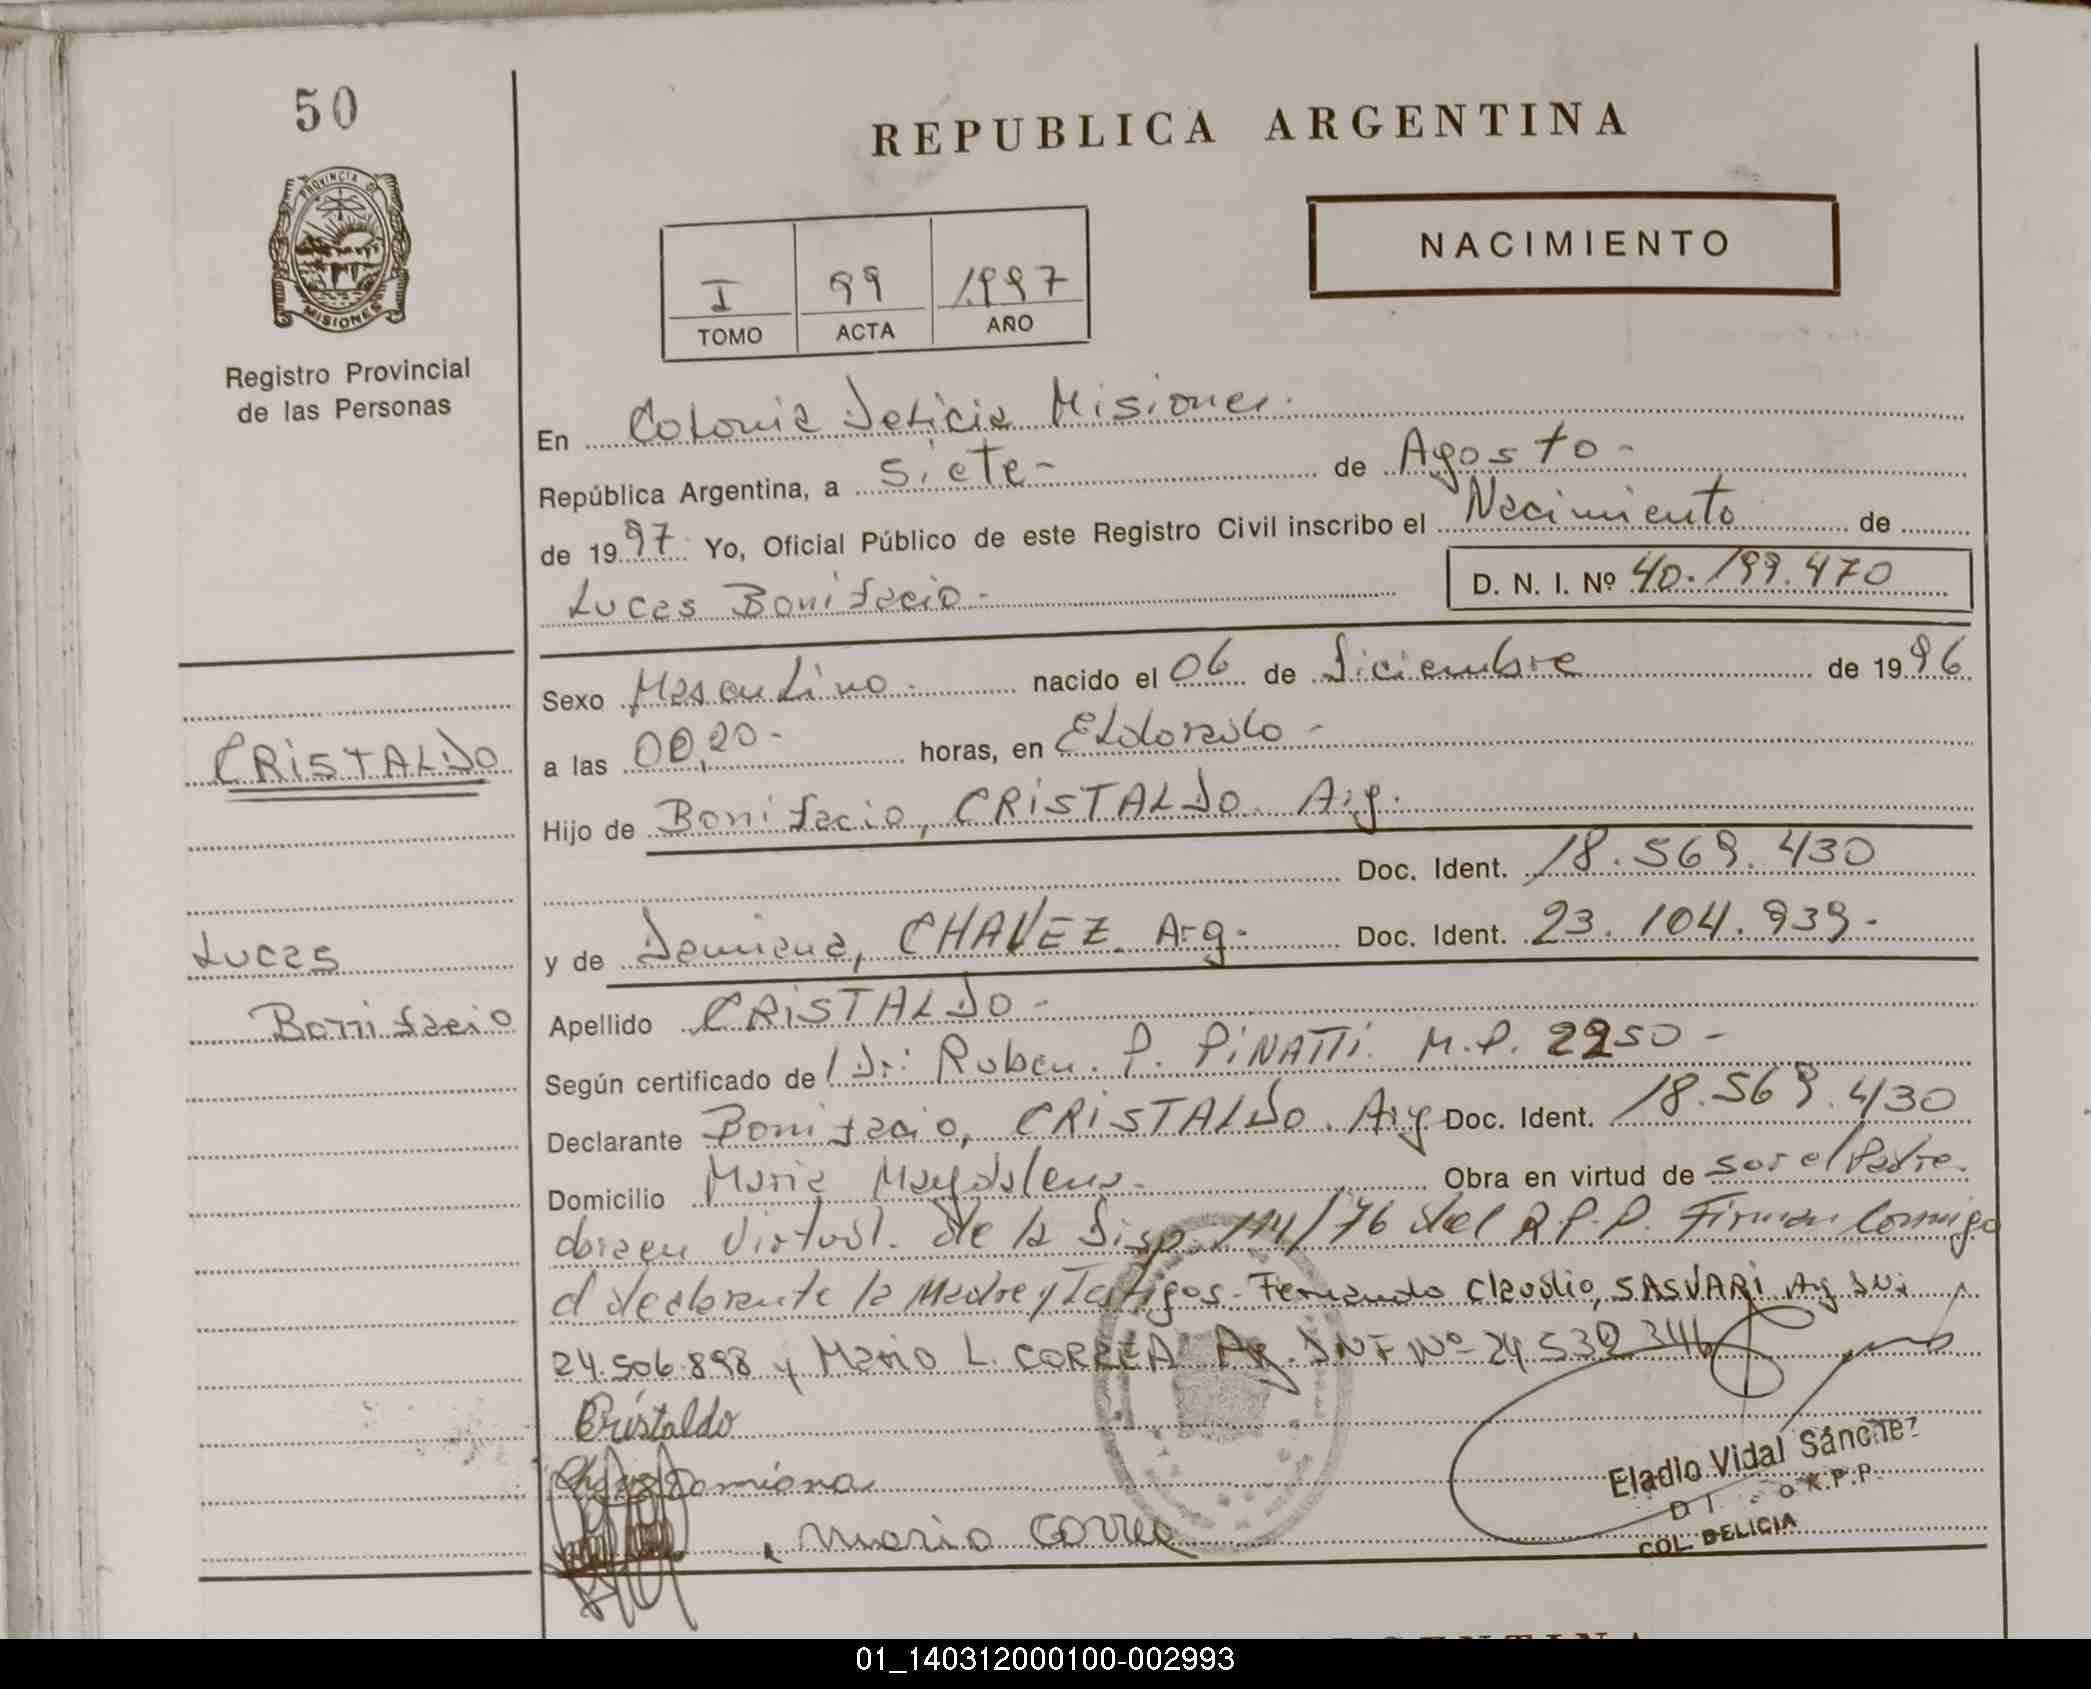 50
PROVINCIA DE
MISIONES
Registro Provincial
de las Personas
REPUBLICA ARGENTINA
NACIMIENTO
I 99 1997
TOMO ACTA AÑO
En Colonia Delicia Misiones.
República Argentina, a siete - de Agosto -
de 1997. Yo, Oficial Público de este Registro Civil inscribo el Nacimiento de
Lucas Bonifacio - D. N. I. Nº 40.199.470
Sexo Masculino. nacido el 06 de Diciembre de 1996
CRISTALDO
a las 00,20- horas, en Eldorado -
Hijo de Bonifacio, CRISTALDO. Arg.
Doc. Ident. 18.569.430
Lucas
y de Damiana, CHAVEZ. Arg. Doc. Ident. 23.104.939-
Bonifacio
Apellido CRISTALDO -
Según certificado de Dr: Ruben. P. PINATTI. M.P. 2250 -
Declarante Bonifacio, CRISTALDO. Arg Doc. Ident. 18.569.430
Domicilio Maria Magdalena. Obra en virtud de ser el Padre.
virtud. de la Disp. 114/76 del R.P.P. Firman Conmigo
el declarante la Madre y Testigos - Fernando Claudio, SASVARI Arg DNI
24.506.898 y Mario L. CORREA Arg. DNI Nº 24 532 344
Cristaldo
Chavez Damiana
Mario Correa
Eladio Vidal Sánchez
R.P.P.
COL. DELICIA
01_140312000100-002993